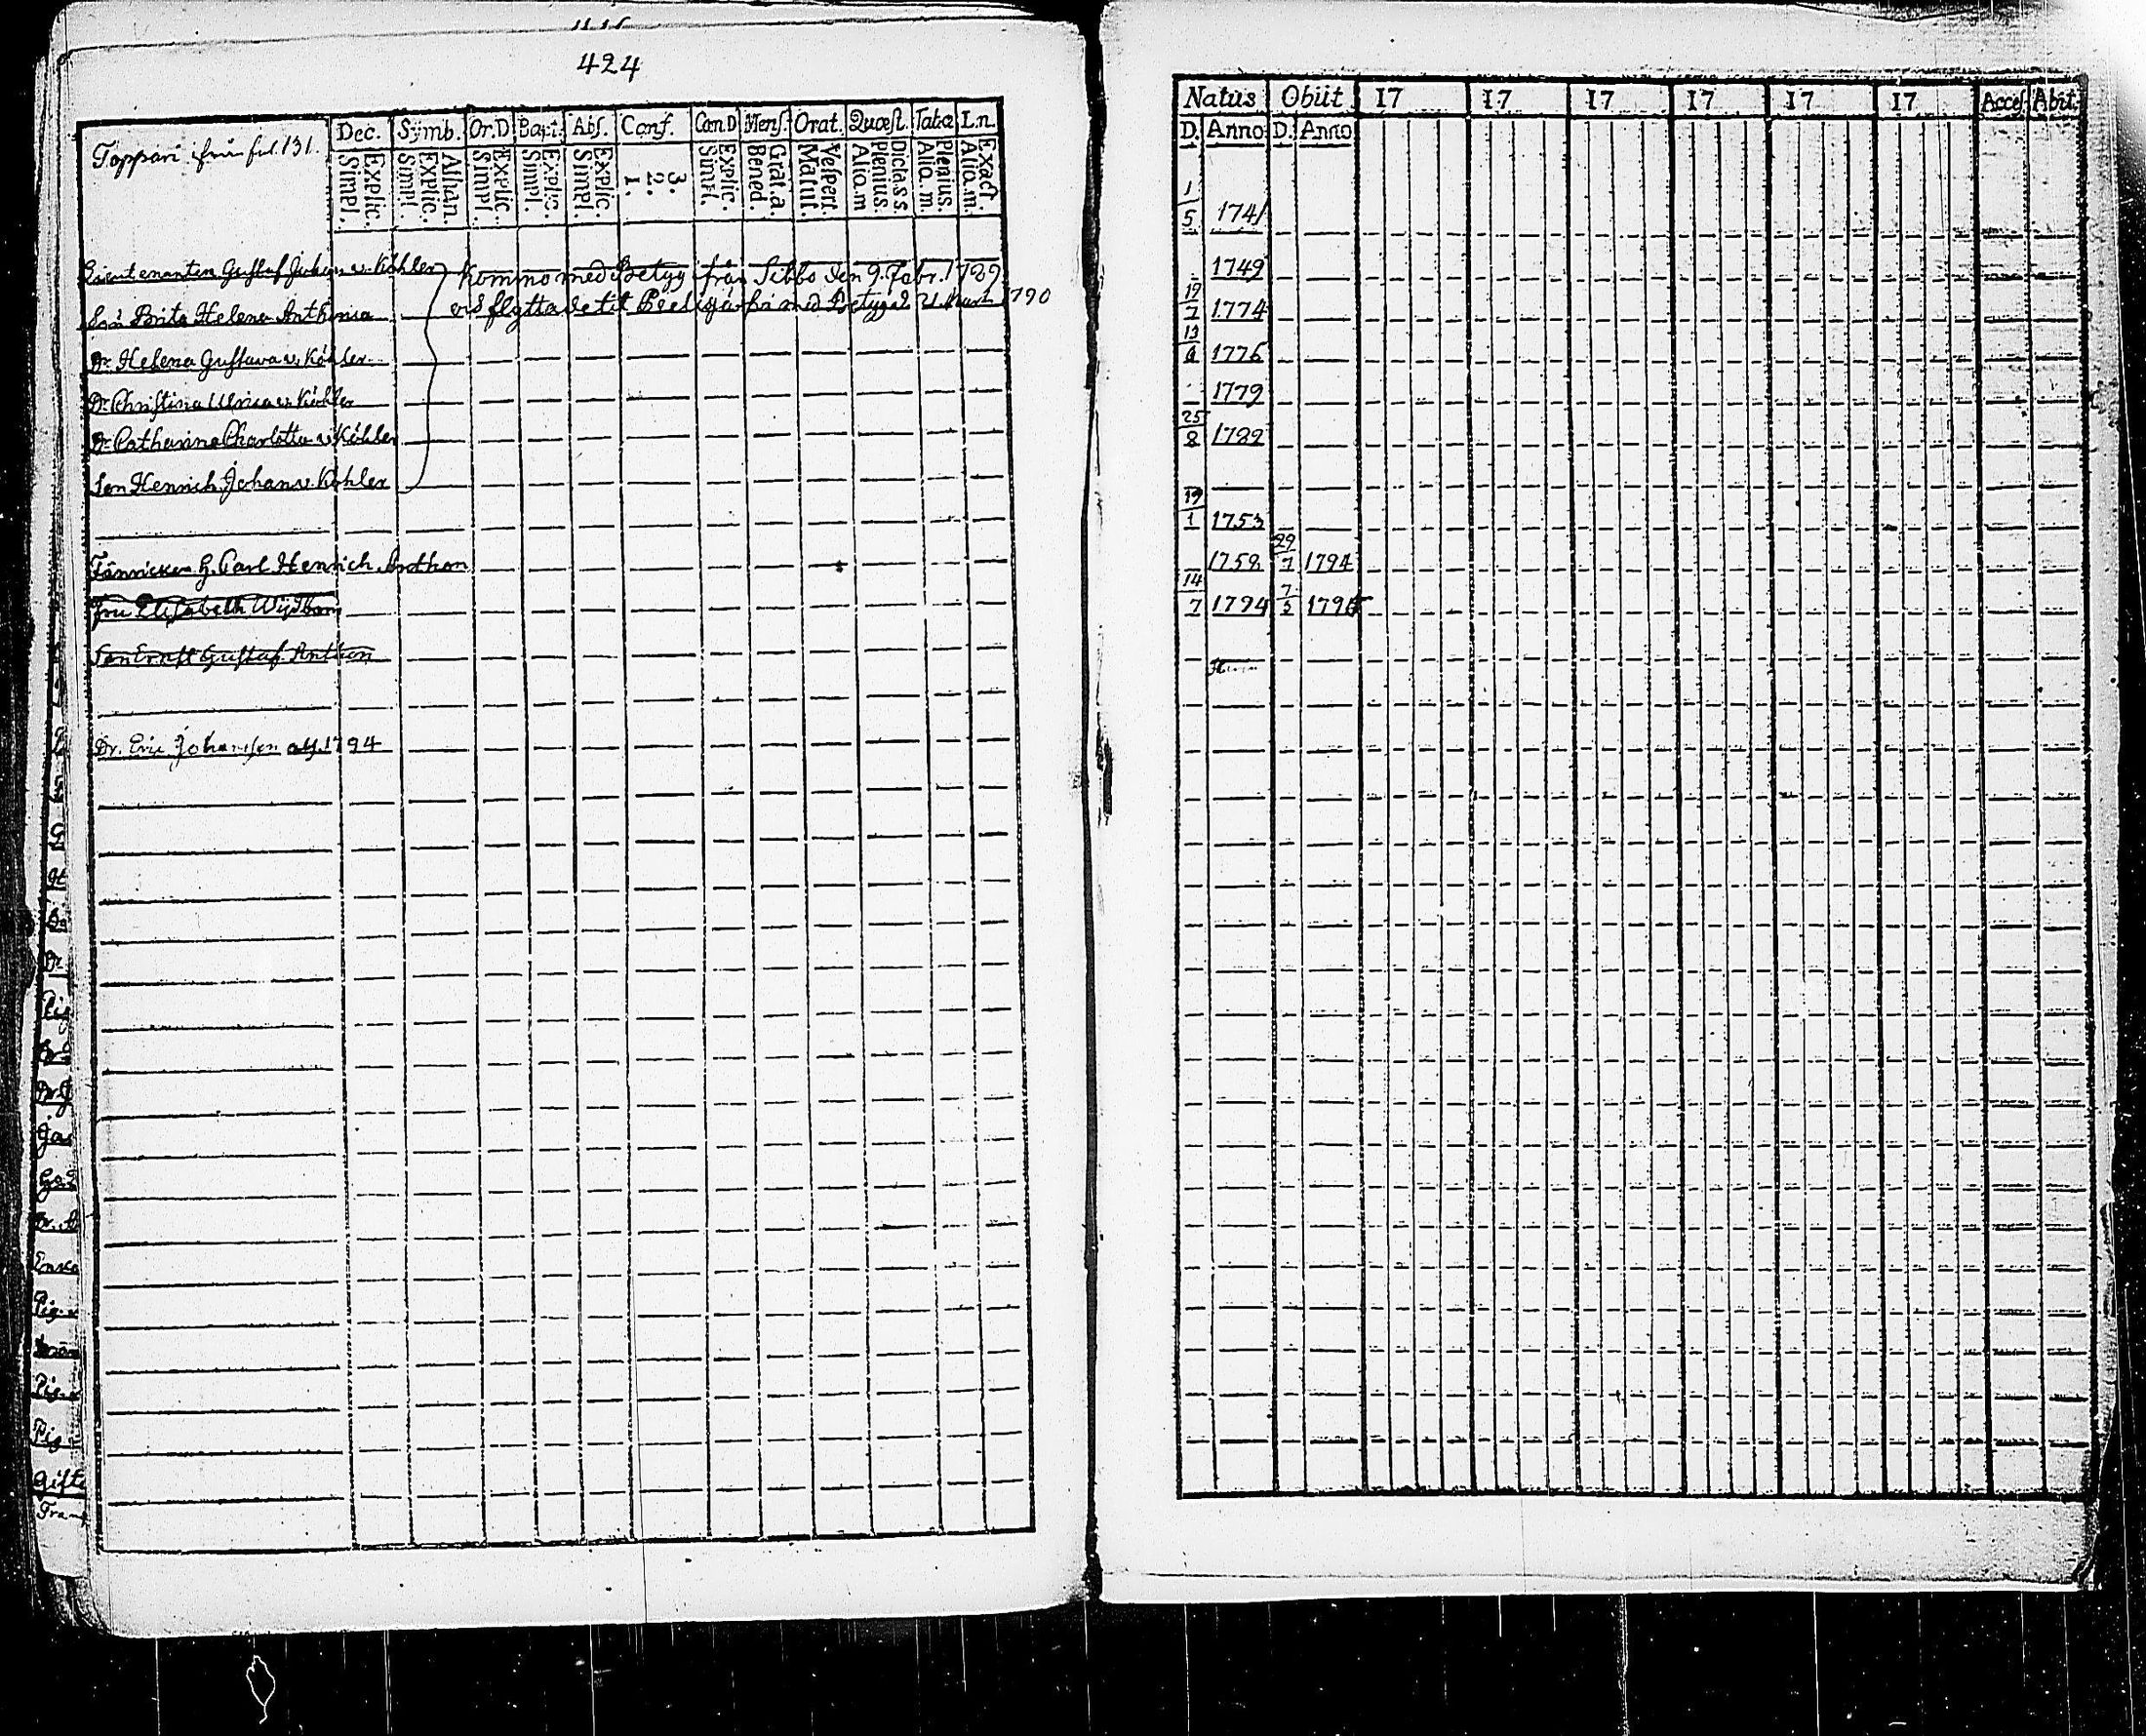 424
Toppari från fol. 131.
Dec. Symb. Or.D Bapt. Abs. Conf. Cen.D Mens. Orat. Quæst. Taba I.n.
Explic. Simpl. Athan. Explic. Simpl. Explic. Simpl. Explic. Simpl. Explic. Simpl. 3. 2. 1. Explic. Simpl. Grat.a. Bened. Vespert. Matut. Dicta.s s. Plenius. Alia.m Plenius. Alia.m Exact. Alia.m.
Lieutenanten Gustaf Johan v. Köhler
Komna med betyg från Sibbo den 9. Febr. 1789
Brita Helena Anthonia
och flyttade til med Betyg d. 1790
Dr. Helena Gustava v. Köhler
Dr. Christina Ulrica v. Köhler
Dr. Catharina Charlotta v. Köhler
Son Henrich Johan v. Köhler
Fänricken H. Carl Henrich Anthon
Fru Elisabeth
Son Ernst Gustaf Anthon
Dr. Eric Johansson 1794
Natus Obiit 17 17 17 17 17 17 Acces. Abit.
D. Anno D. Anno
1/5 1741
1749
19/7 1774
1776
1779
25/8 1782
19/1 1753
1758 29/7 1794
14/7 1794